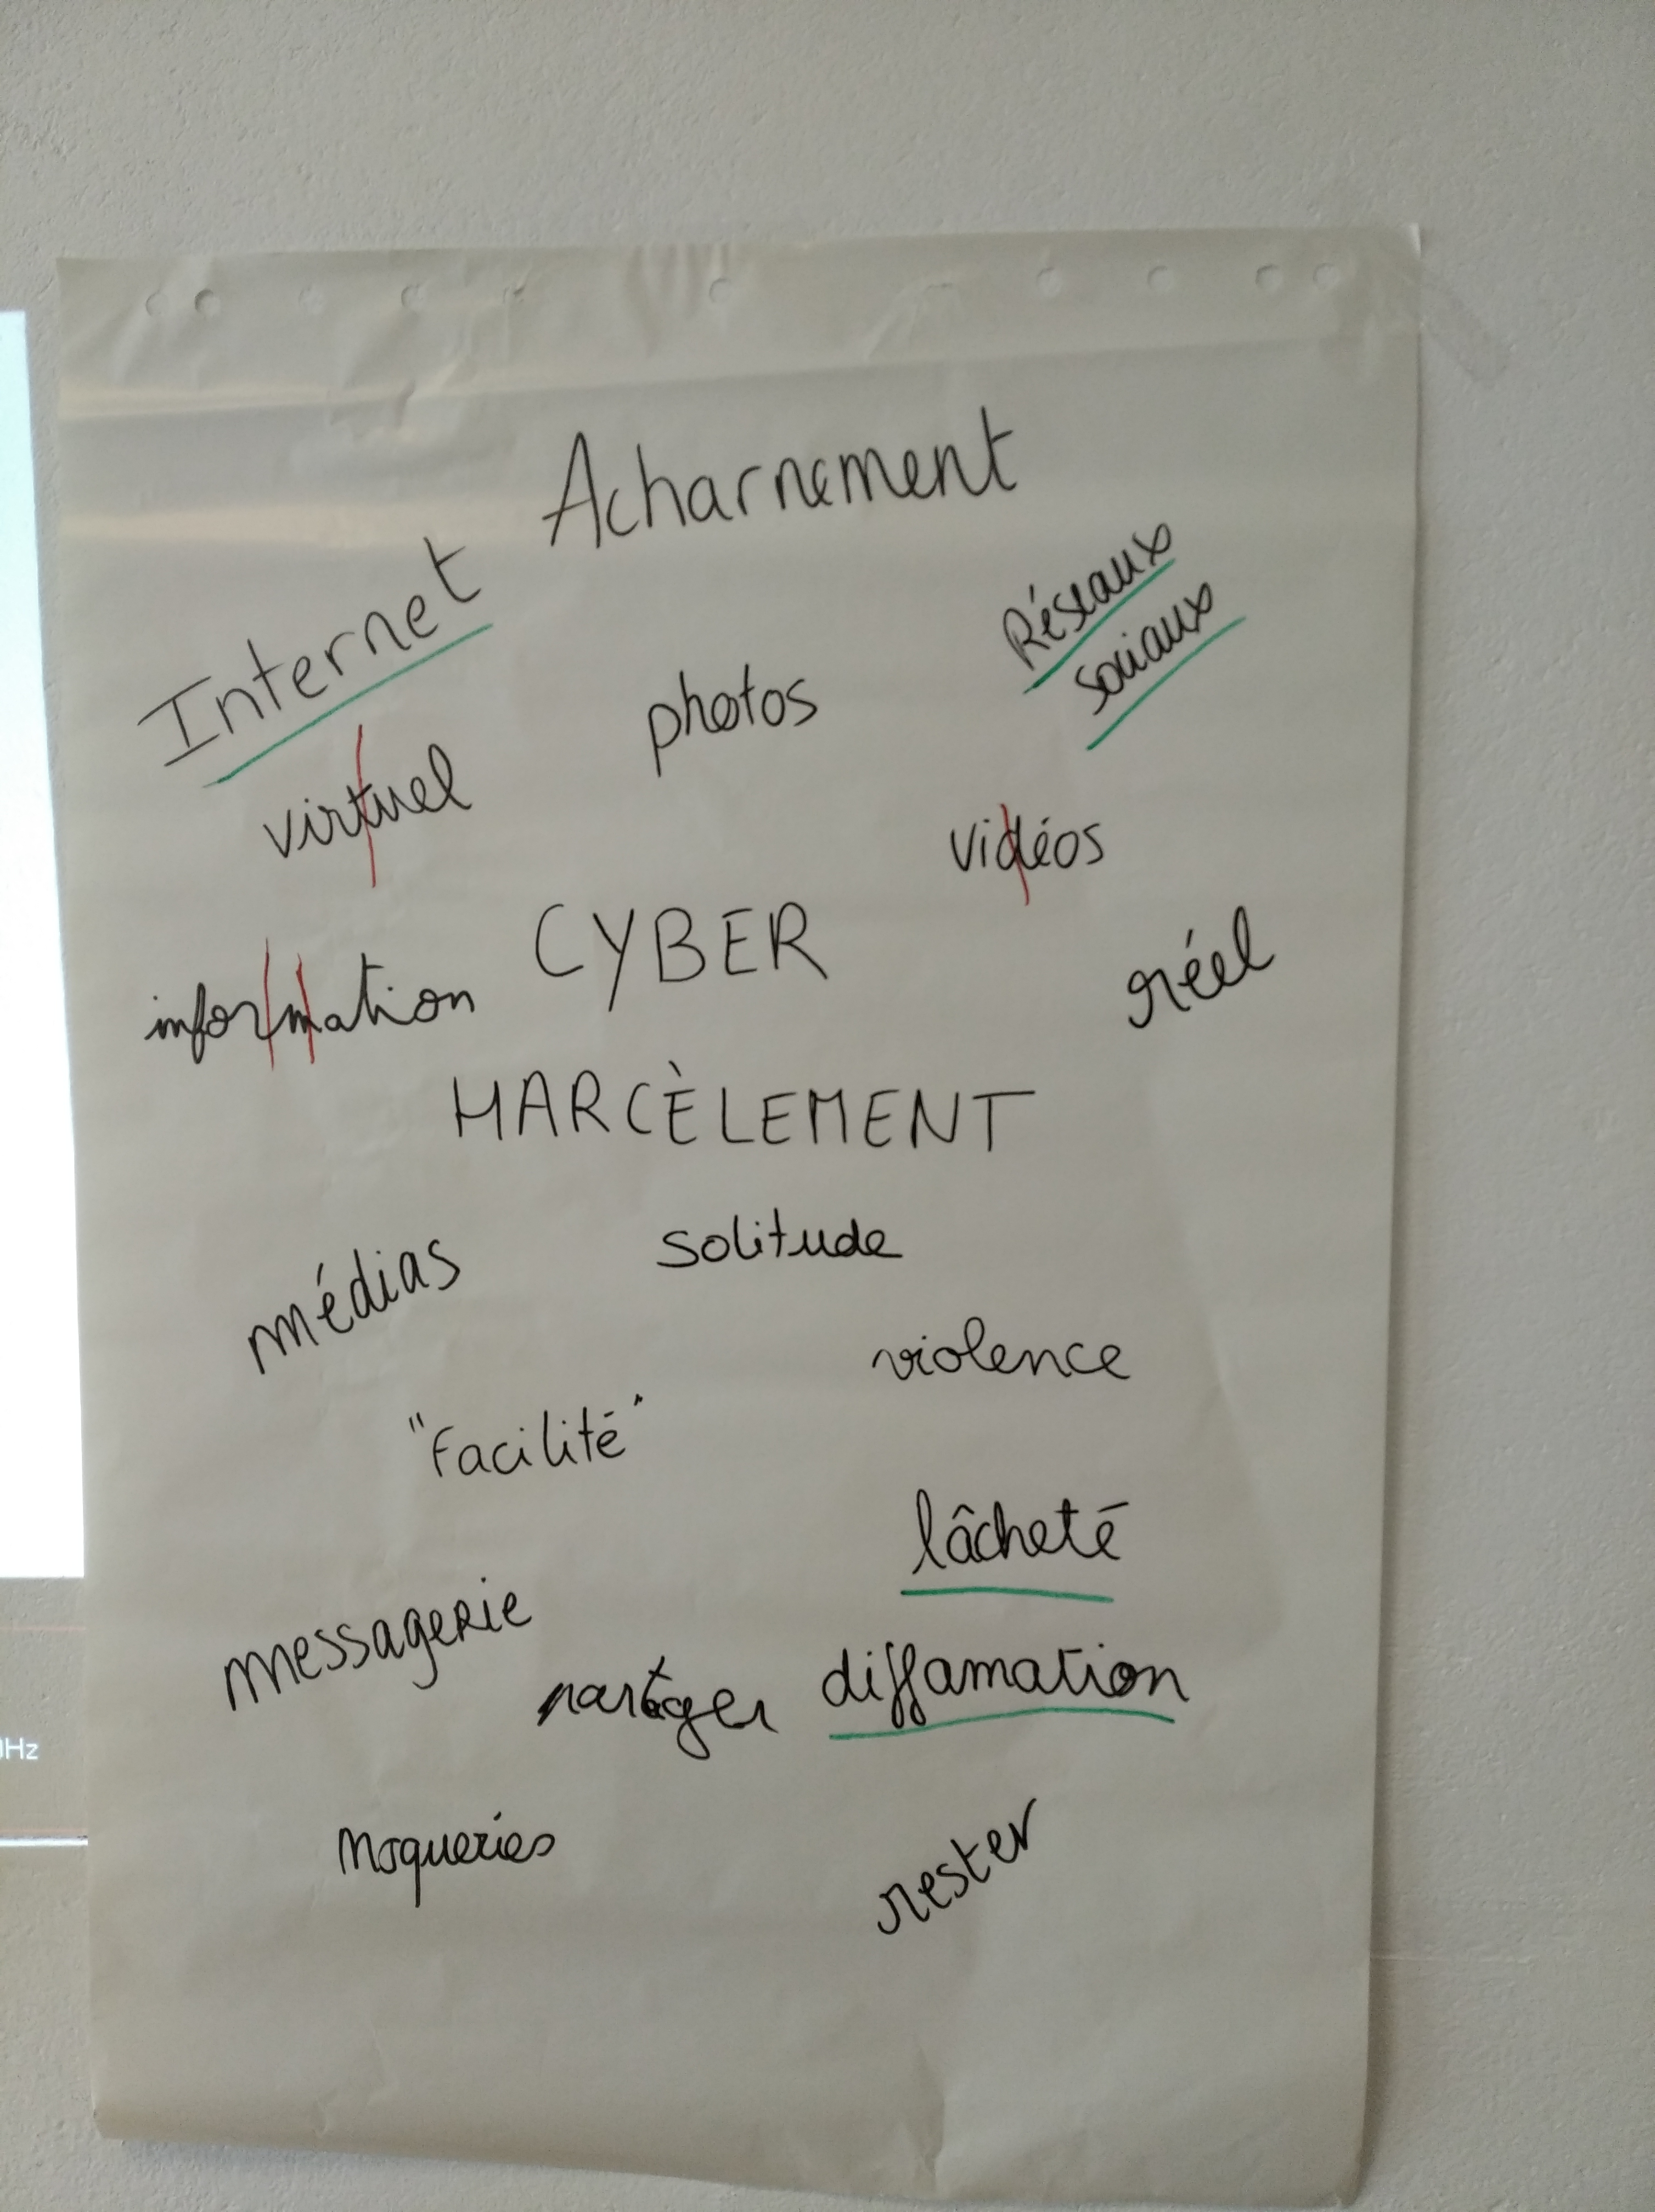 Acharnement
Internet
Réseaux
sociaux
photos
virtuel
vidéos
CYBER
réel
information
HARCÈLEMENT
solitude
médias
violence
"Facilité"
lâcheté
messagerie
partager
diffamation
Moqueries
rester
Hz